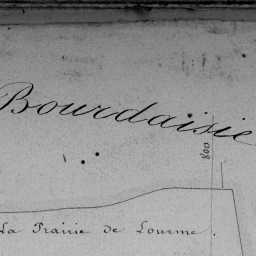 Bourdaisie
800
La Prairie de Lourme.